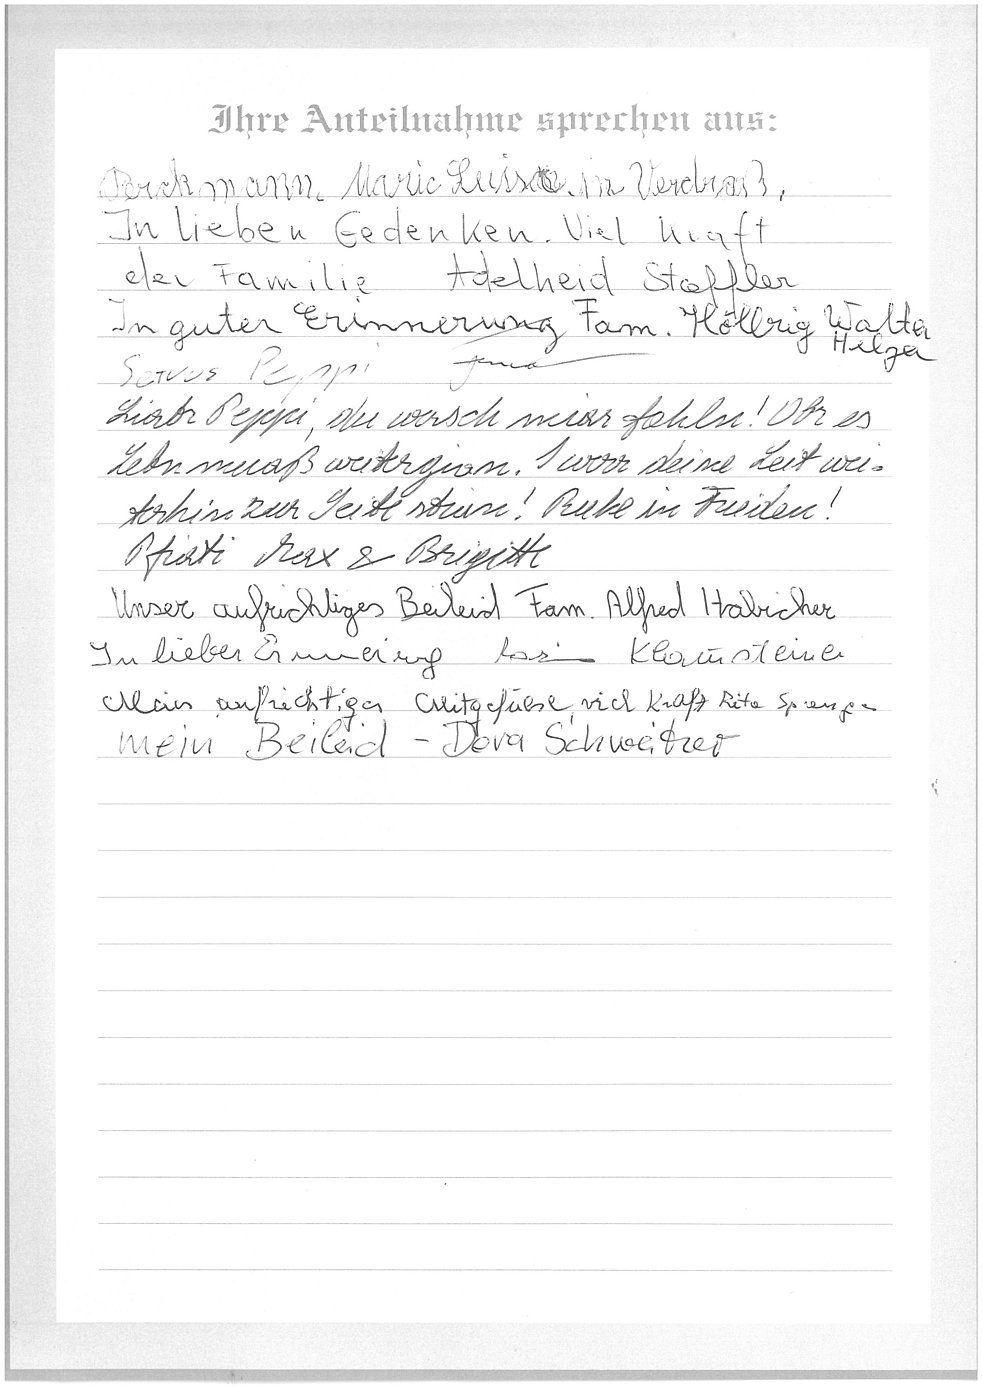 Ihre Anteilnahme sprechen aus:
Perckmann Marie Luise in Verdroß.
In lieben Gedenken. Viel Kraft
der Familie Adelheid Stoffler
In guter Erinnerung Fam. Höllrig Walter
Helga
Servus Peppi
Liabr Peppi, du wersch miar fahln! Obr es
Lebn muaß weitergian. I woor deine Leit wei-
terhin zur Seite stian! Ruhe in Frieden!
Pfiati Max & Brigitte
Unser aufrichtiges Beileid Fam. Alfred Habicher
In lieber Erinnerung Klaunsteiner
Mein aufrichtiges Mitgefühl, viel Kraft Rita
mein Beileid - Dora Schweitzer